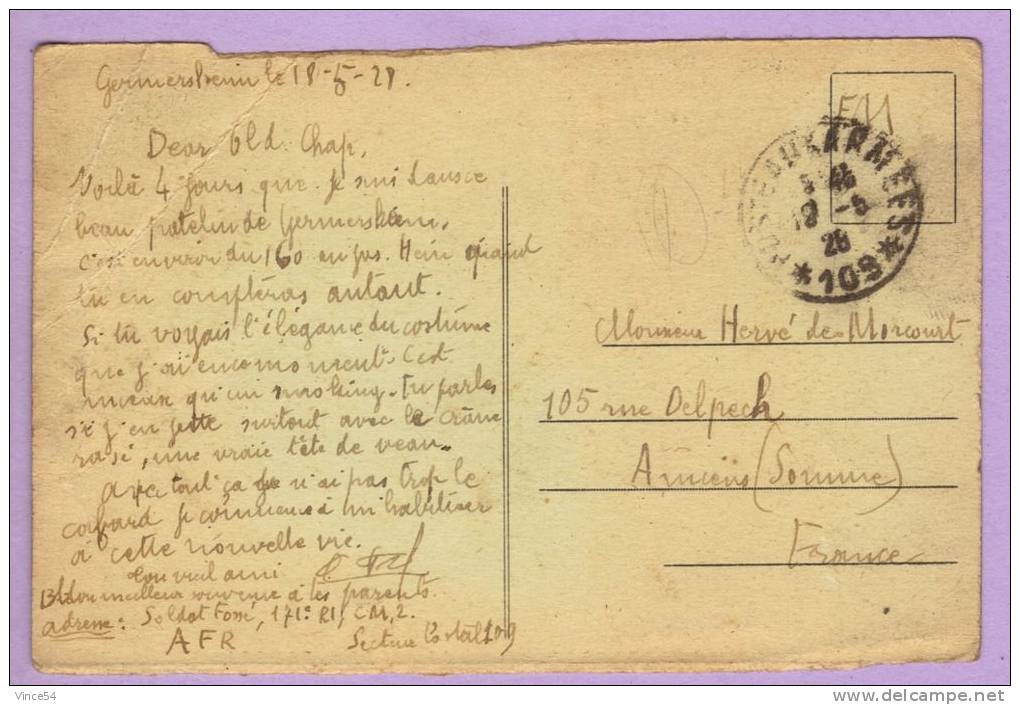 Germersheim le 18-5-28.
Dear Old Chap,
Voilà 4 jours que je suis dans ce
beau patelin de Germersheim,
c'est environ du 160 en jus. Hein quand
tu en compteras autant.
Si tu voyais l'élégance du costume
que j'ai en ce moment. C'est
mieux qu'un smoking. Tu parles
si j'en jette surtout avec le crâne
rasé, une vraie tête de veau.
avec tout ça je n'ai pas trop le
cafard je commence à m'habituer
à cette nouvelle vie.
Ton vieil ami
Mon meilleur souvenir à tes parents.
adresse: Soldat Fossé, 171e RI, CM2.
AFR Secteur Postal 109
FM
POSTE AUX ARMEES
18 -5
28
*109*
Monsieur Hervé de Morcourt
105 rue Delpech
Amiens (Somme)
France
Vince54
www.delcampe.net